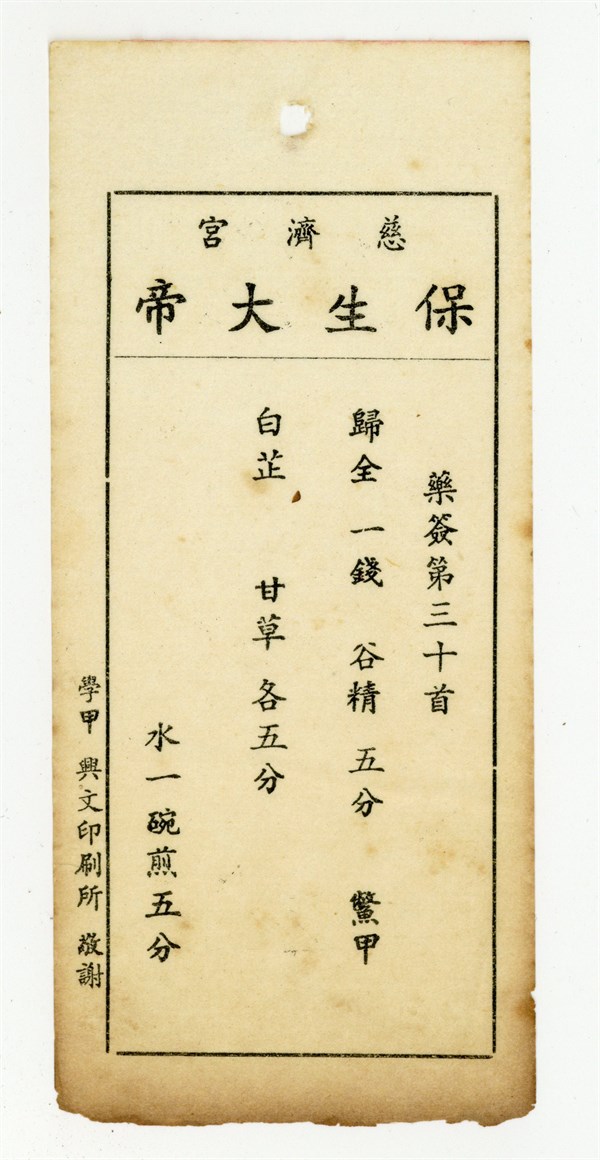 慈濟宮
保生大帝
藥簽第三十首
歸全 一錢 谷精 五分 鱉甲
白芷 甘草 各五分
水一碗煎五分
學甲 興文印刷所 敬謝